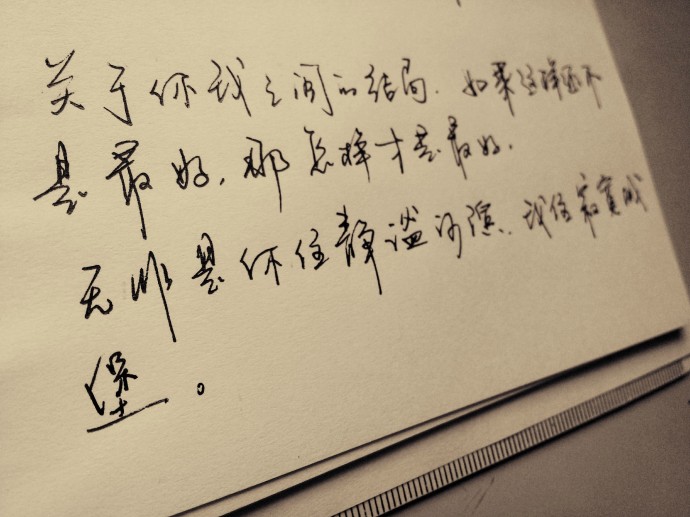 关于你我之间的结局.如果这样还不
是最好.那怎样才是最好.
无非是你住静谧河滨、我住寂寞城
堡。